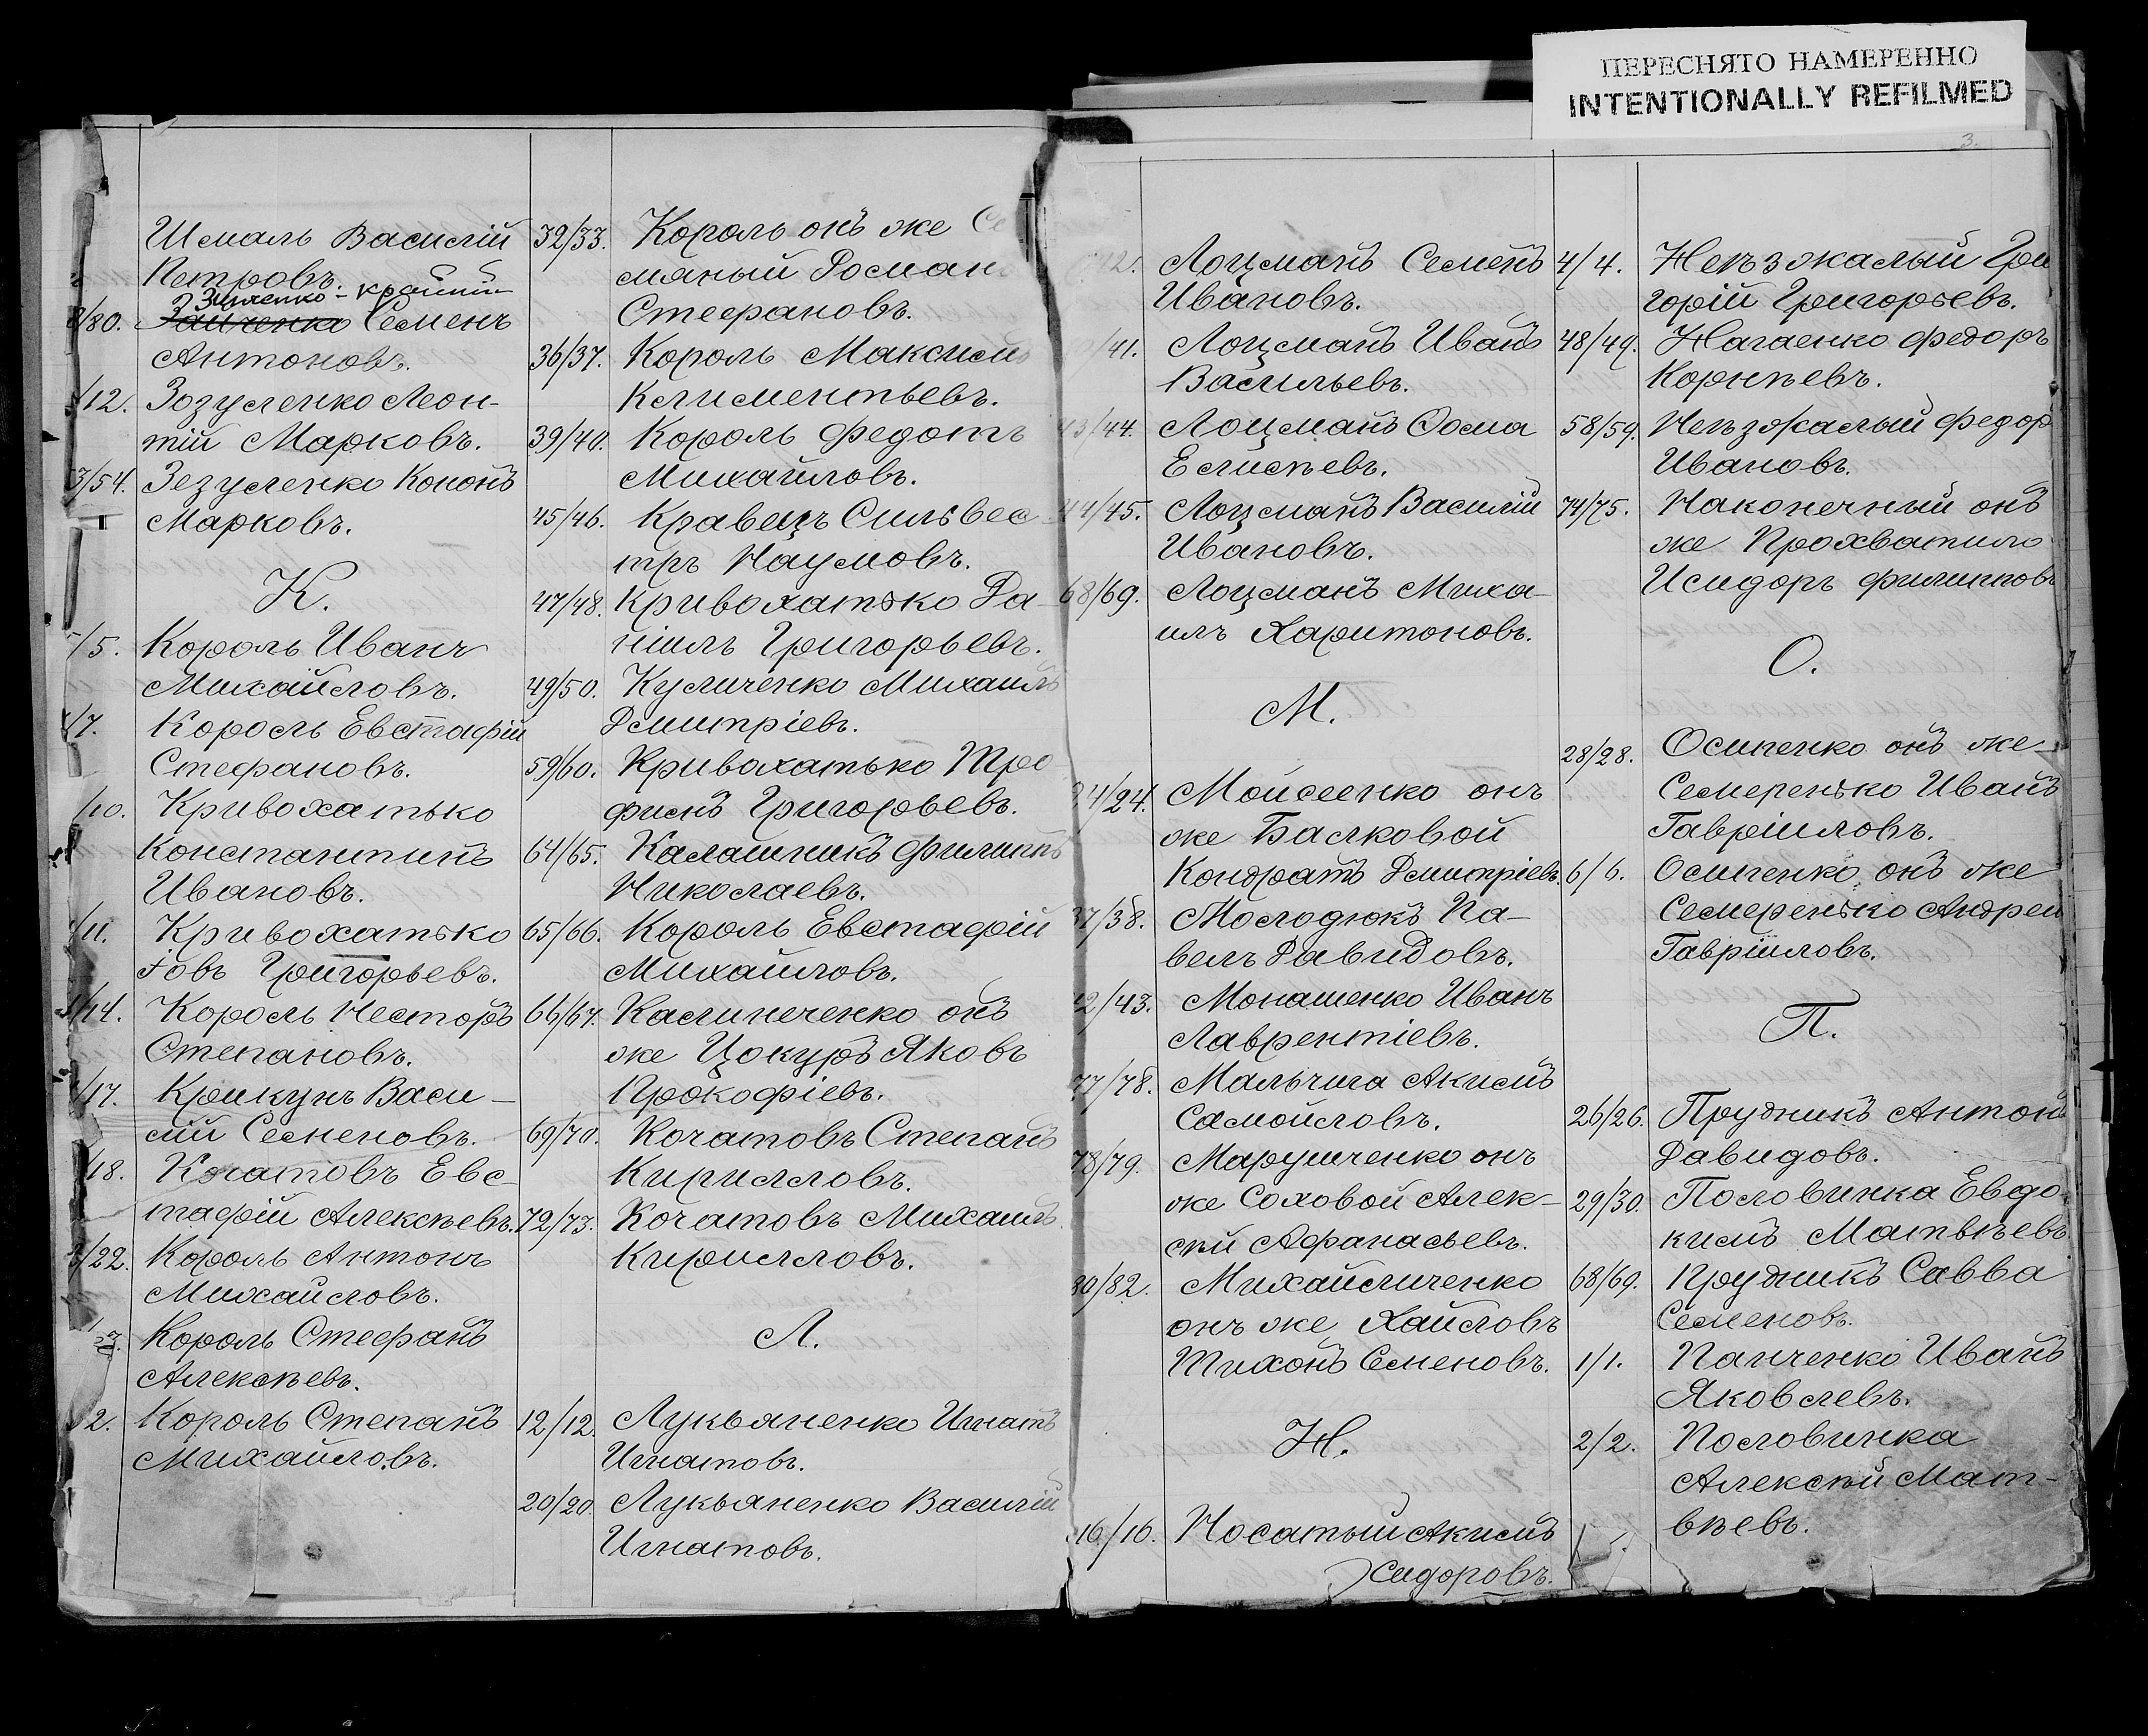 ПЕРЕСНЯТО НАМЕРЕННО
INTENTIONALLY REFILMED
3.
Шмаль Василій
Петровъ.
Зинченко - крайній
/80. Семенъ
Антоновъ.
/12. Зозуленко Леон-
тій Марковъ.
/54. Зезуленко Кононъ
Марковъ.
К.
/5. Король Иванъ
Михайловъ.
/7. Король Евстафій
Стефановъ.
/10. Кривохатько
Константинъ
Ивановъ.
/11. Кривохатько
Іовъ Григорьевъ.
/14. Король Несторъ
Степановъ.
/17. Крикунъ Васи-
лій Семеновъ.
/18. Кочатовъ Евс-
тафій Алексѣевъ.
/22. Король Антонъ
Михайловъ.
Король Стефанъ
Алексѣевъ.
2. Король Степанъ
Михайловъ.
32/33. Король онъ же
мяный Романъ
Стефановъ.
36/37. Король Максимъ
Климентьевъ.
39/40. Король Федотъ
Михайловъ.
45/46. Кравецъ Сильвес
тръ Наумовъ.
47/48. Кривохатько Да-
ніилъ Григорьевъ.
49/50. Куличенко Михаилъ
Дмитріевъ.
59/60. Кривохатько Тро
фимъ Григорьевъ.
64/65. Калашникъ Филиппъ
Николаевъ.
65/66. Король Евстафій
Михайловъ.
66/67. Калиниченко онъ
же Цокуръ Яковъ
Прокофіевъ.
69/70. Кочатовъ Степанъ
Кирилловъ.
72/73. Кочатовъ Михаилъ
Кирилловъ.
Л.
12/12. Лукьяненко Игнатъ
Игнатовъ.
20/20. Лукьяненко Василій
Игнатовъ.
Лоцманъ Семенъ
Ивановъ.
/41. Лоцманъ Иванъ
Васильевъ.
43/44. Лоцманъ Ѳома
Елисѣевъ.
44/45. Лоцманъ Василій
Ивановъ.
68/69. Лоцманъ Миха-
илъ Харитоновъ.
М.
24/24. Мойсеенко онъ
же Балковой
Кондратъ Дмитріевъ.
37/38. Молодюкъ Па-
велъ Давидовъ.
42/43. Монашенко Иванъ
Лаврентіевъ.
77/78. Мальчига Акимъ
Самойловъ.
78/79. Марущенко онъ
же Соловой Алек-
сѣй Афанасьевъ.
80/82. Михайличенко
онъ же Хайловъ
Тихонъ Семеновъ.
Н.
16/16. Носатый Акимъ
Сидоровъ.
4/4. Неѣзжалый Гри
горій Григорьевъ.
48/49. Нагаенко Федоръ
Корнѣевъ.
58/59. Неѣзжалый Федор
Ивановъ.
74/75. Наконечный онъ
же Прохватило
Исидоръ Филипповъ
О.
28/28. Осипенко онъ же
Семеренько Иванъ
Гавріиловъ.
6/6. Осипенко онъ же
Семеренько Андрей
Гавріиловъ.
П.
26/26. Прудникъ Антонъ
Давидовъ.
29/30. Половинка Евдо-
кимъ Матвѣевъ
68/69. Прудникъ Савва
Семеновъ.
1/1. Панченко Иванъ
Яковлевъ.
2/2. Половинка
Алексѣй Мат-
вѣевъ.